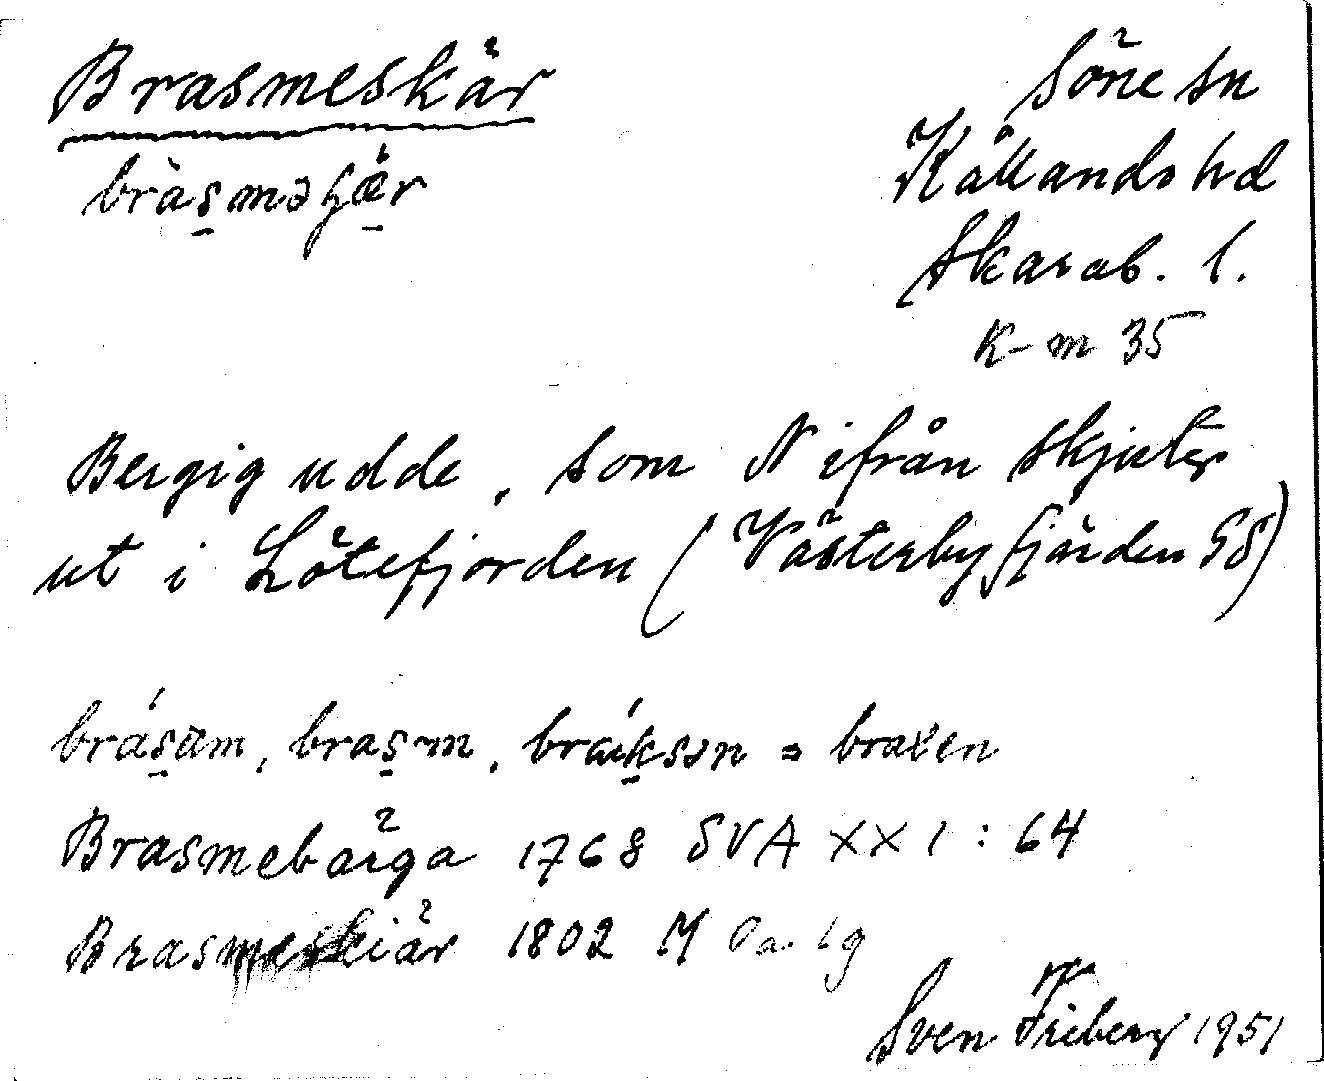 Brasmeskär
Söne sn
Kållands hd
bràsməʃæ̀r
Skarab. l.
K-m 35
Bergig udde, som N ifrån skjuter
ut i Lötefjorden (Västerbyfjärden GS)
brásam, brasm, bráksən = braxen
Brasmebärga 1768 SVA XXI : 64
Brasmeskiär 1802 M
Sven Friberg 1951